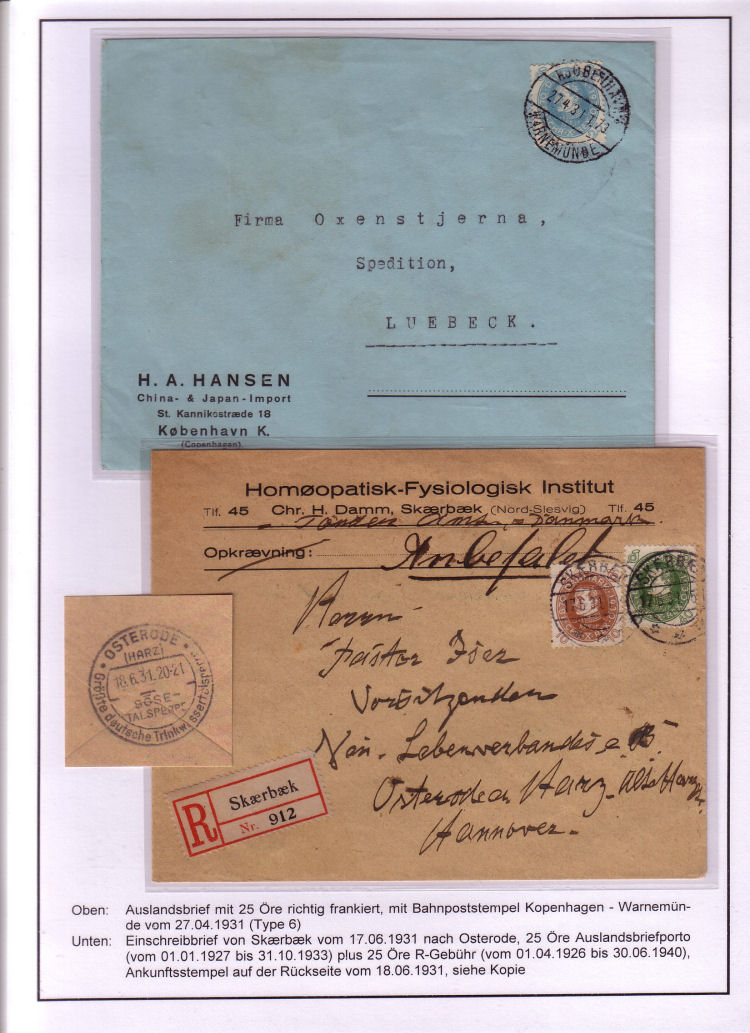 KJØBENHAVN
27.4.31. T.73
WARNEMÜNDE
Firma Oxenstjerna,
Spedition,
LUEBECK.
H. A. HANSEN
China- & Japan-Import
St. Kannikestræde 18
København K.
(Copenhagen).
Homøopatisk-Fysiologisk Institut
Tlf. 45 Chr. H. Damm, Skærbæk (Nord-Slesvig) Tlf. 45
Tønder Amt, Danmark.
Opkrævning:
Anbefalet
SKÆRBÆK
17.6.31
SKÆRBÆK
17.6
Herrn
Pastor Iser
Vorsitzenden
Lebensverbandes e.
Osterode a Harz
Hannover
OSTERODE
(HARZ)
18.6.31.20-21
SÖSE-
TALSPERRE
Größte deutsche Trinkwassertalsperre
R
Skærbæk
Nr. 912
Oben: Auslandsbrief mit 25 Öre richtig frankiert, mit Bahnpoststempel Kopenhagen - Warnemün-
de vom 27.04.1931 (Type 6)
Unten: Einschreibbrief von Skærbæk vom 17.06.1931 nach Osterode, 25 Öre Auslandsbriefporto
(vom 01.01.1927 bis 31.10.1933) plus 25 Öre R-Gebühr (vom 01.04.1926 bis 30.06.1940),
Ankunftsstempel auf der Rückseite vom 18.06.1931, siehe Kopie